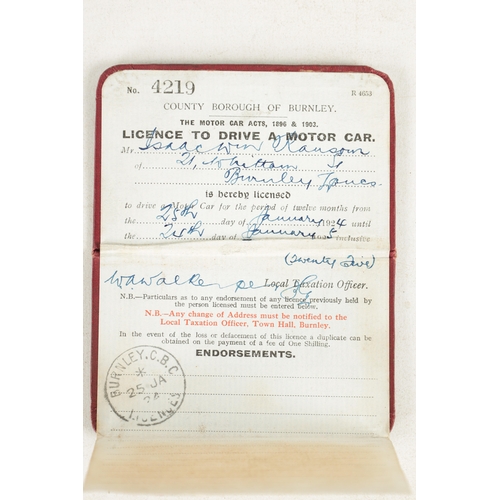 No. 4219 R 4653
COUNTY BOROUGH OF BURNLEY.
THE MOTOR CAR ACTS, 1896 & 1903.
LICENCE TO DRIVE A MOTOR CAR.
Mr. Isaac Wm Ransom
of 21, Whittam St
Burnley Lancs.
is hereby licensed
to drive a Motor Car for the period of twelve months from
the 25th day of January 1924 until
the 24th day of January 1925 inclusive
(Twenty five)
Local Taxation Officer.
N.B.—Particulars as to any endorsement of any licence previously held by
the person licensed must be entered below.
N.B.—Any change of Address must be notified to the
Local Taxation Officer, Town Hall, Burnley.
In the event of the loss or defacement of this licence a duplicate can be
obtained on the payment of a fee of One Shilling.
ENDORSEMENTS.
BURNLEY. C.B.C
25 JA
24
LICENCES